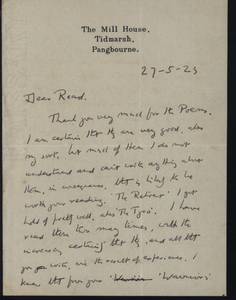 The Mill House,
Tidmarsh,
Pangbourne.
27-5-23
Dear Read.
Thank you very much for the Poems.
I am certain that they are very good, also
my sort, but much of them I do not
understand and can't write anything about
them, in consequence, that is likely to be
worth your reading. 'The Retreat' I got
hold of pretty well, also
read them too many times, with the
increasing certainty that they, and all that
you write, are the result of experience. I
knew that from your 'Warriors'